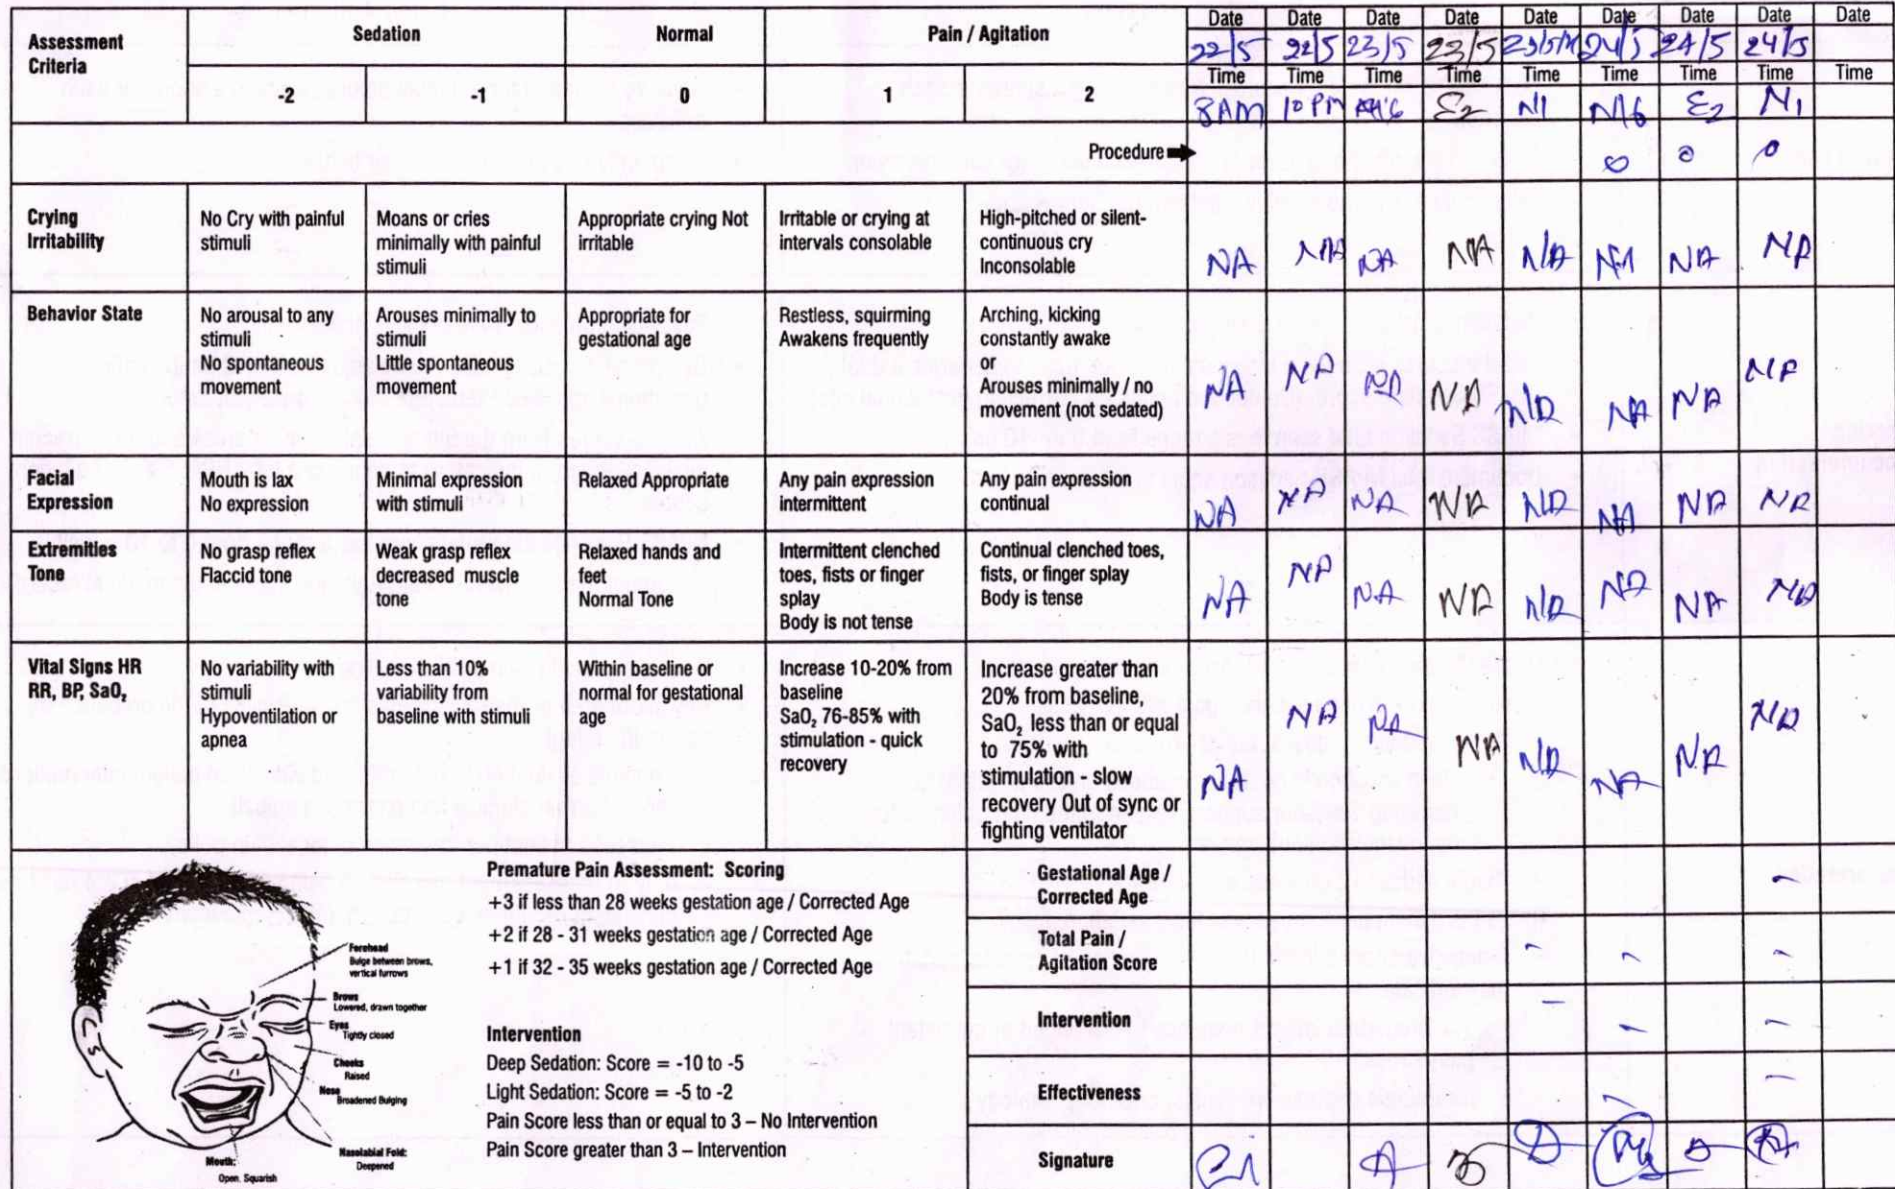 Assessment Criteria Sedation Normal Pain / Agitation Date Date Date Date Date Date Date Date Date
22/5 22/5 23/5 23/5 24/5 24/5 24/5
Time Time Time Time Time Time Time Time Time
-2 -1 0 1 2
8AM 10 PM E2 N1 N6 E2 N1
Procedure
0 0 0
Crying Irritability
No Cry with painful stimuli
Moans or cries minimally with painful stimuli
Appropriate crying Not irritable
Irritable or crying at intervals consolable
High-pitched or silent-continuous cry
Inconsolable
NA NA NA NA NA NA NA NA
Behavior State
No arousal to any stimuli
No spontaneous movement
Arouses minimally to stimuli
Little spontaneous movement
Appropriate for gestational age
Restless, squirming
Awakens frequently
Arching, kicking constantly awake
or
Arouses minimally / no movement (not sedated)
NA NA NA NA NA NA NA NA
Facial Expression
Mouth is lax
No expression
Minimal expression with stimuli
Relaxed Appropriate
Any pain expression intermittent
Any pain expression continual
NA NA NA NA NA NA NA NA
Extremities Tone
No grasp reflex
Flaccid tone
Weak grasp reflex decreased muscle tone
Relaxed hands and feet
Normal Tone
Intermittent clenched toes, fists or finger splay
Body is not tense
Continual clenched toes, fists, or finger splay
Body is tense
NA NA NA NA NA NA NA NA
Vital Signs HR RR, BP, SaO₂
No variability with stimuli
Hypoventilation or apnea
Less than 10% variability from baseline with stimuli
Within baseline or normal for gestational age
Increase 10-20% from baseline
SaO₂ 76-85% with stimulation - quick recovery
Increase greater than 20% from baseline, SaO₂ less than or equal to 75% with stimulation - slow recovery Out of sync or fighting ventilator
NA NA NA NA NA NA NA NA
Forehead
Bulge between brows, vertical furrows
Brows
Lowered, drawn together
Eyes
Tightly closed
Cheeks
Raised
Nose
Broadened Bulging
Nasolabial Fold:
Deepened
Mouth:
Open, Squarish
Premature Pain Assessment: Scoring
+3 if less than 28 weeks gestation age / Corrected Age
+2 if 28 - 31 weeks gestation age / Corrected Age
+1 if 32 - 35 weeks gestation age / Corrected Age
Intervention
Deep Sedation: Score = -10 to -5
Light Sedation: Score = -5 to -2
Pain Score less than or equal to 3 – No Intervention
Pain Score greater than 3 – Intervention
Gestational Age / Corrected Age -
Total Pain / Agitation Score - - -
Intervention - - -
Effectiveness - -
Signature